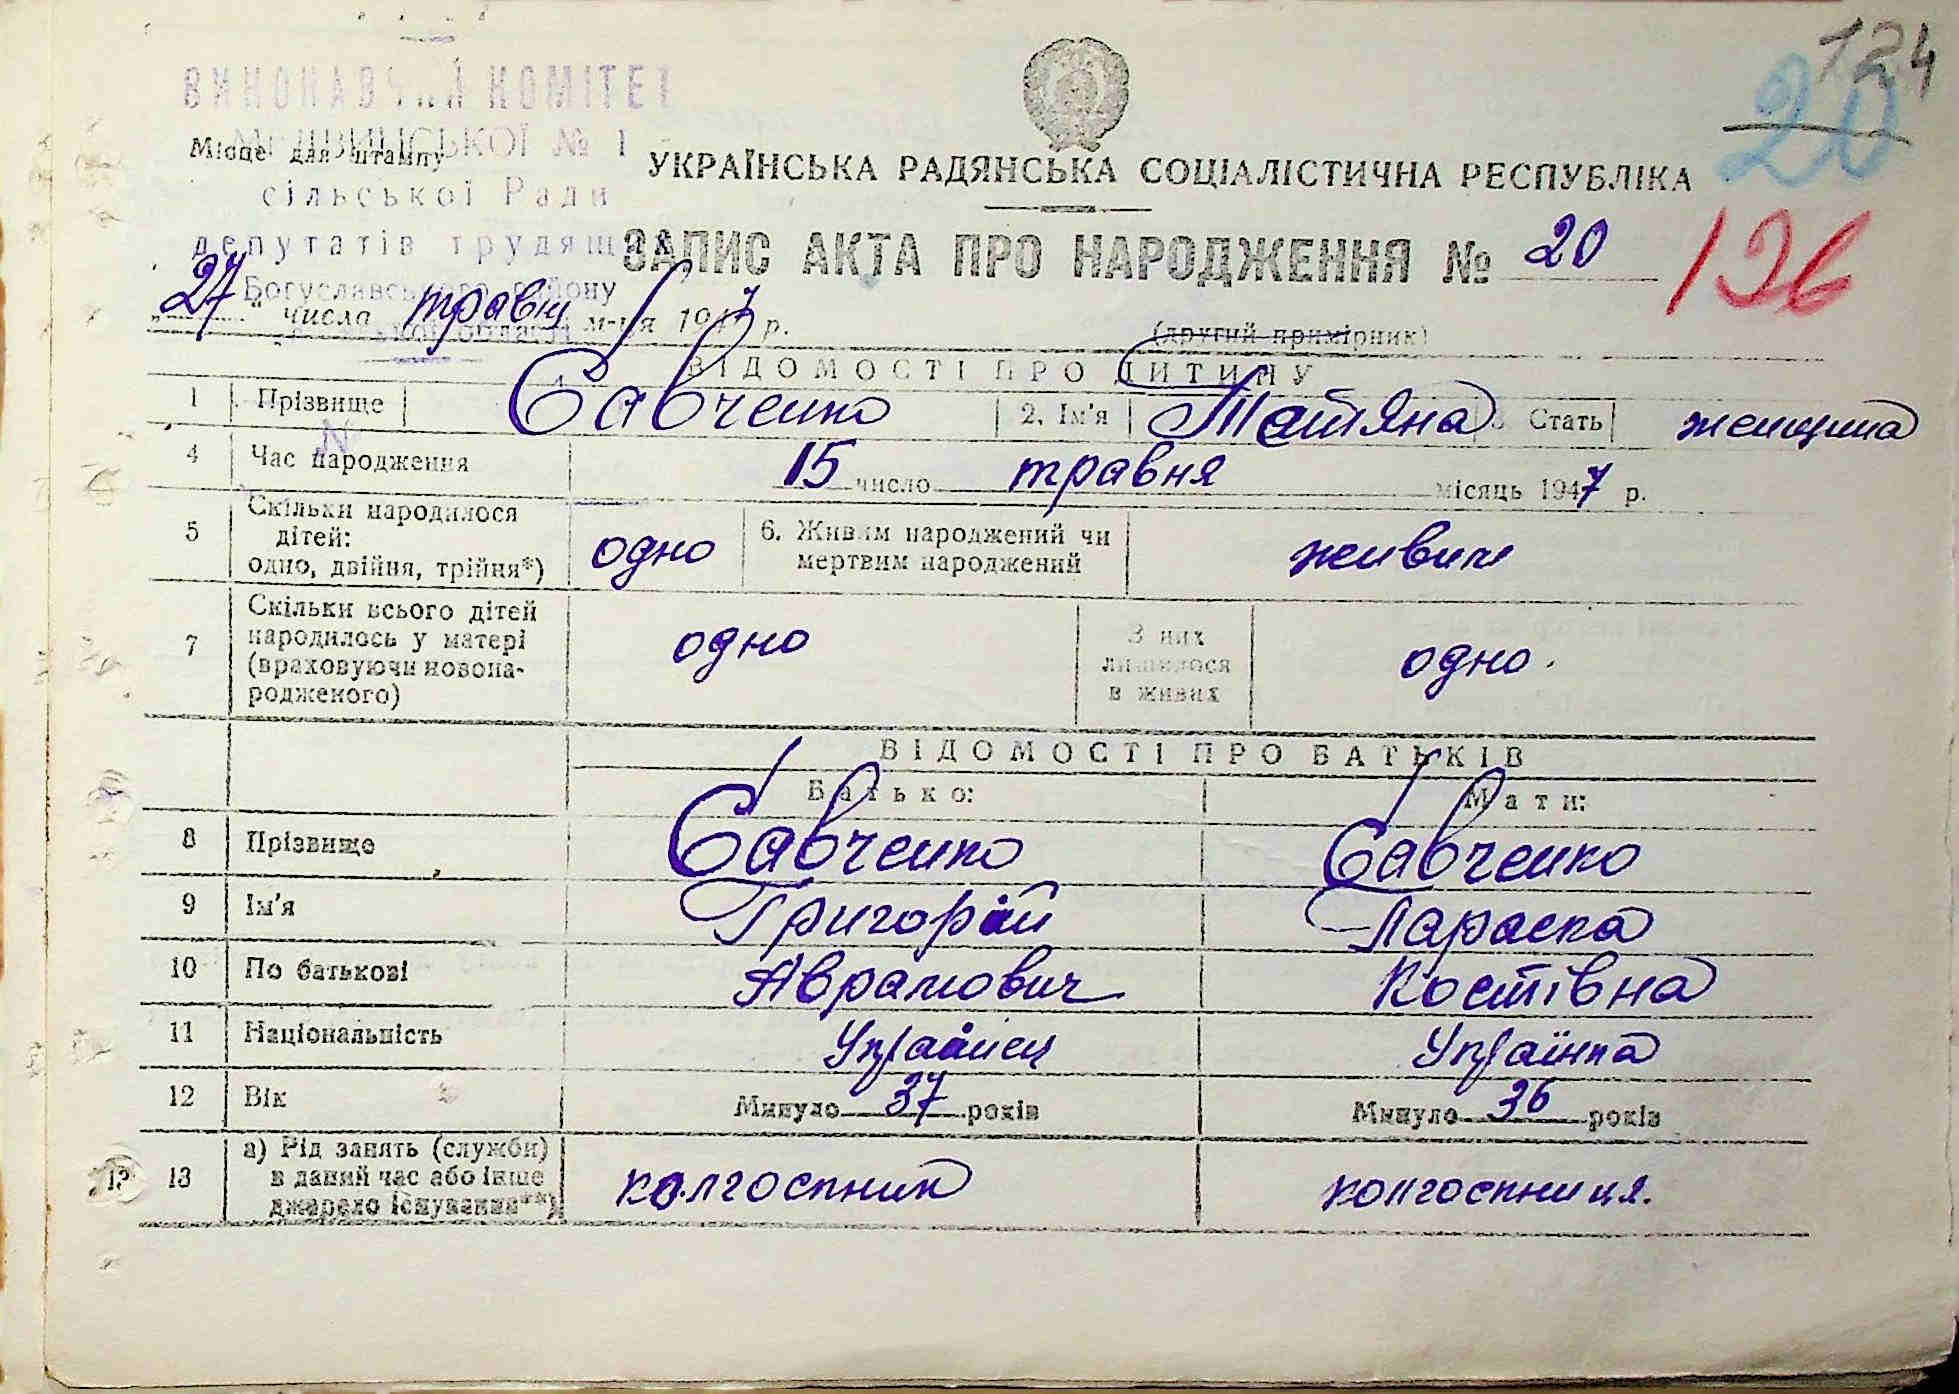 124
20
ВИКОНАВЧИЙ КОМІТЕТ
Місце для штампу
№ 1
сільської Ради
депутатів трудящих
Богуславського району
УКРАЇНСЬКА РАДЯНСЬКА СОЦІАЛІСТИЧНА РЕСПУБЛІКА
ЗАПИС АКТА ПРО НАРОДЖЕННЯ № 20
126
27 числа травня м-ця 1947 р.
(другий примірник)
ВІДОМОСТІ ПРО ДИТИНУ
1 Прізвище Савченко 2. Ім'я Татяна 3 Стать женщина
4 Час народження 15 число травня місяць 1947 р.
5 Скільки народилося дітей: одно, двійня, трійня*) одно 6. Живим народжений чи мертвим народжений живим
7 Скільки всього дітей народилось у матері (враховуючи новонародженого) одно З них лишилося в живих одно.
ВІДОМОСТІ ПРО БАТЬКІВ
Батько: Мати:
8 Прізвище Савченко Савченко
9 Ім'я Григорій Параска
10 По батькові Аврамович Костівна
11 Національність Українец Українка
12 Вік Минуло 37 років Минуло 36 років
13 а) Рід занять (служби) в даний час або інше джерело існування**) колгоспник колгоспниця.